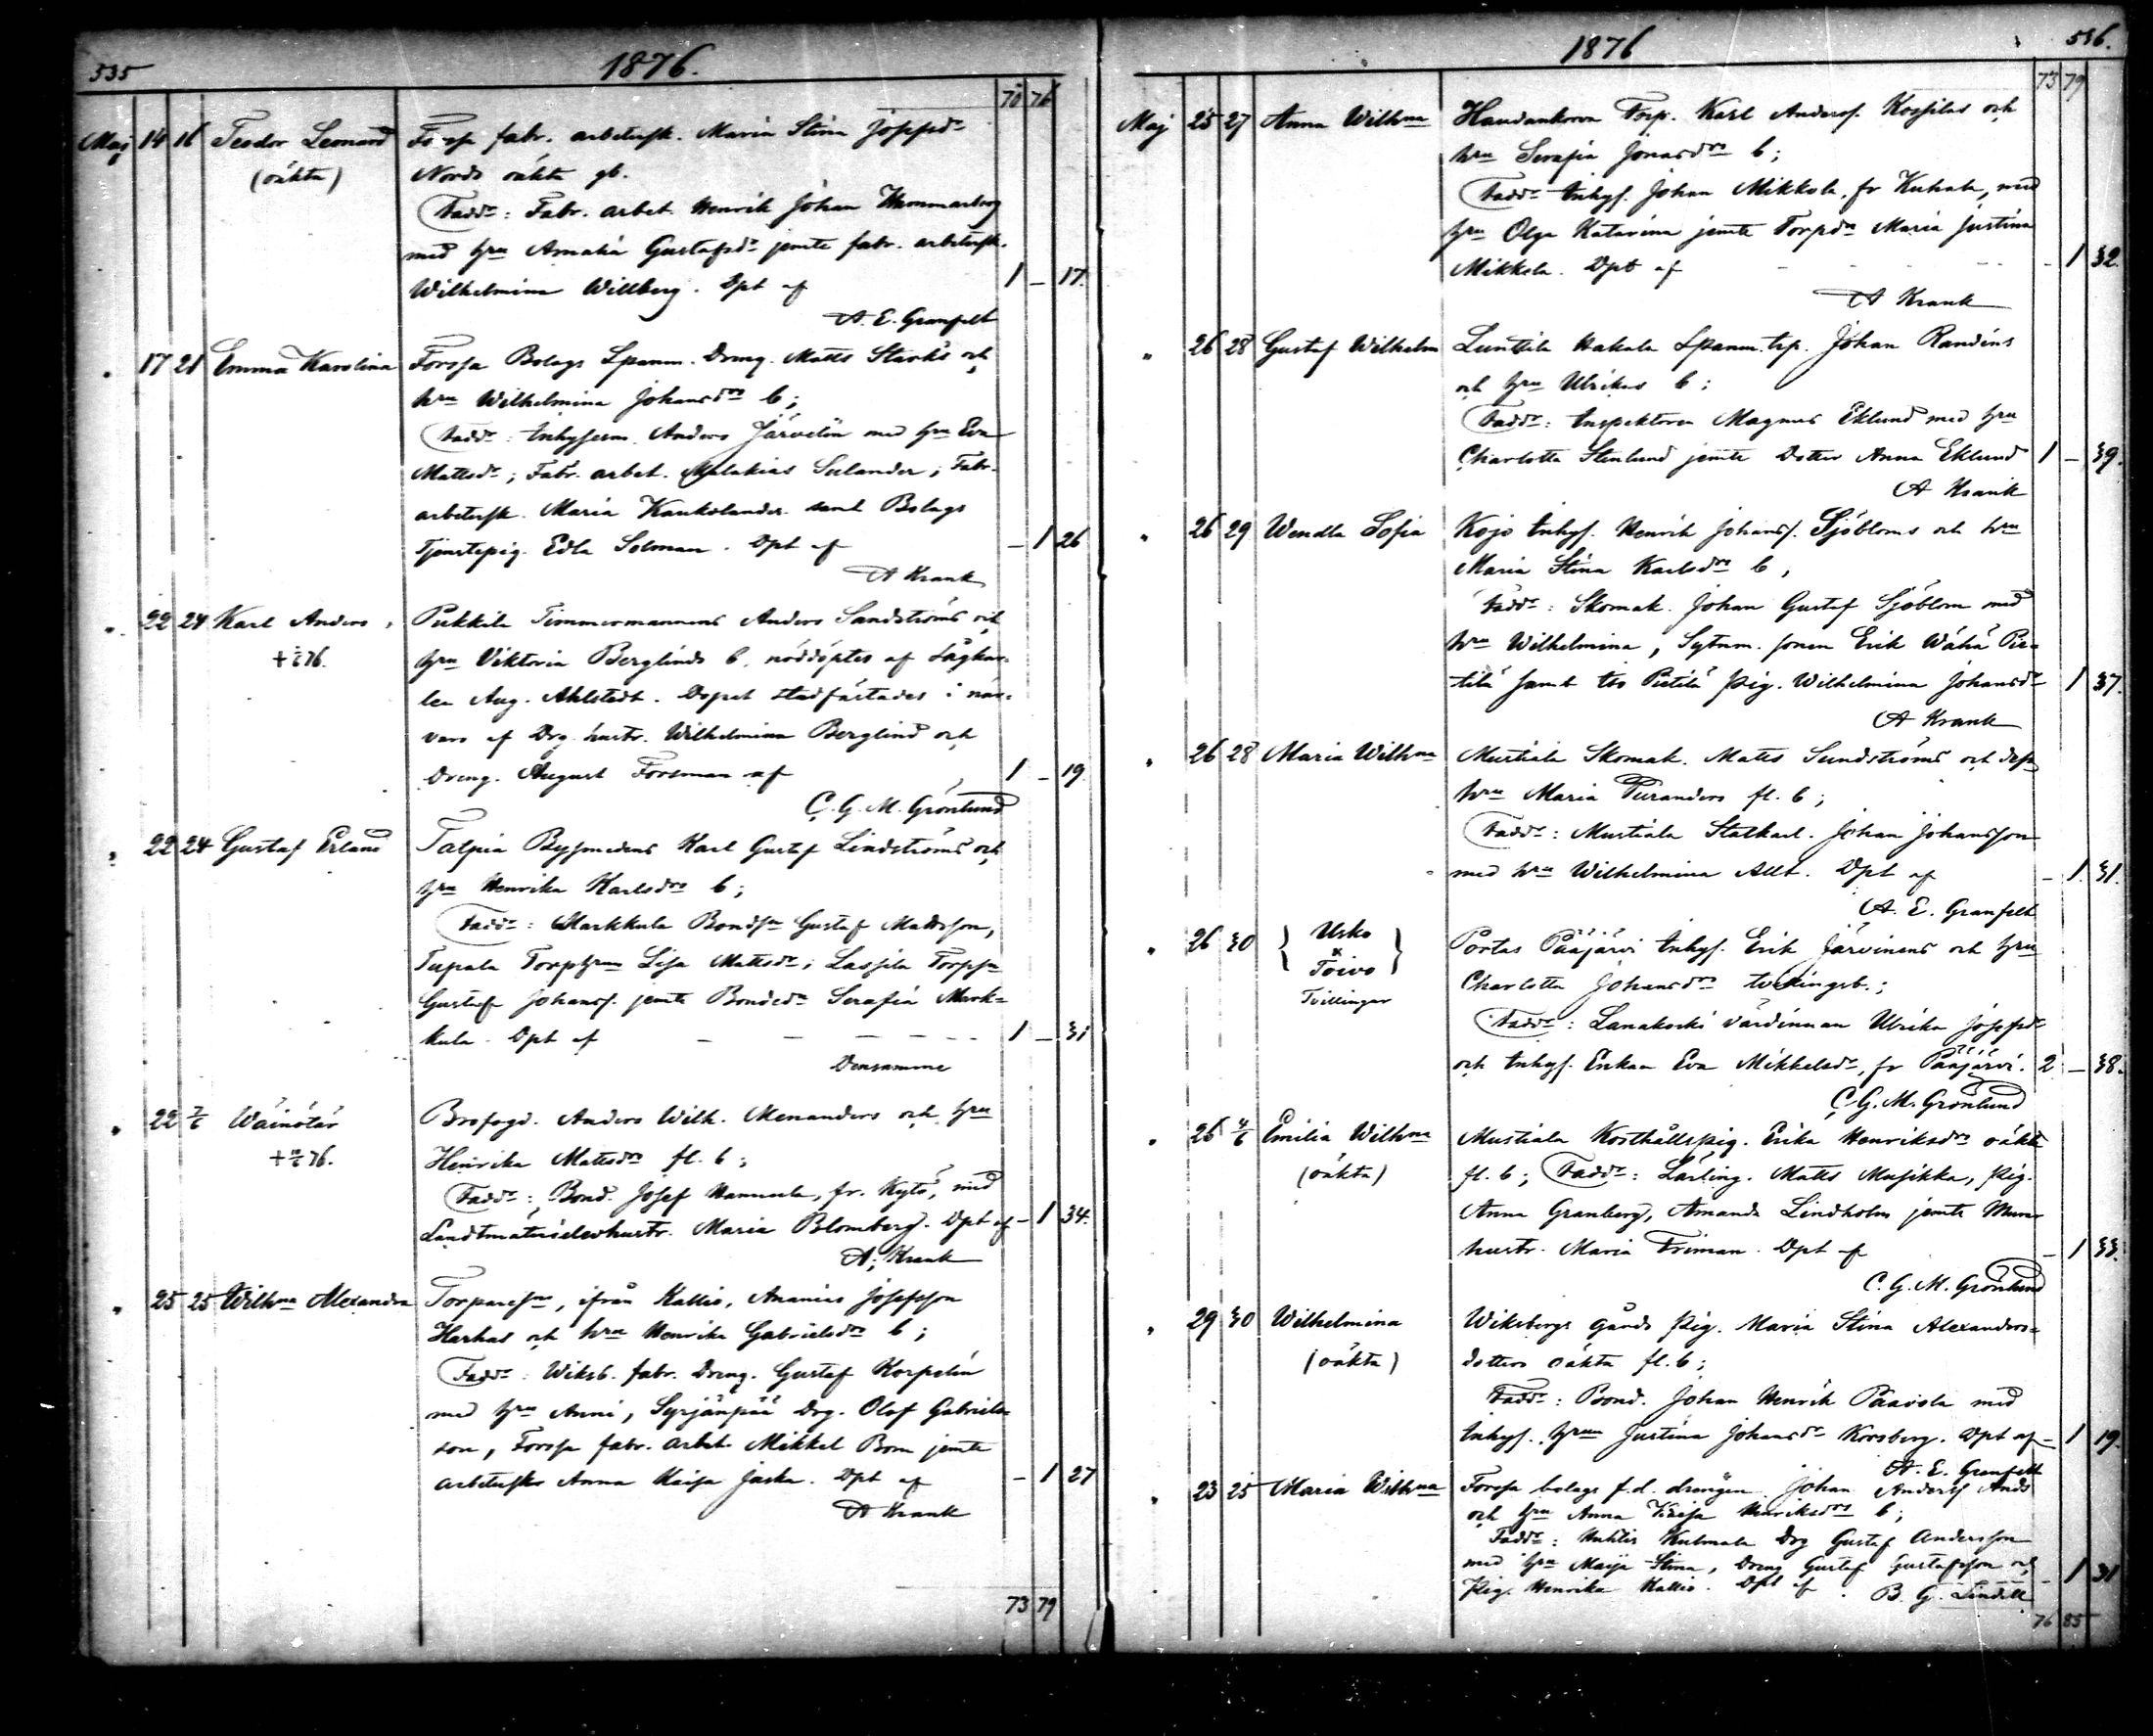 535
1876.
70 76
Maj 14 16 Teodor Leonard Forssa fabr. arbetersk. Maria Stina Josefsdr
(oäkta) Nords oäkta gb.
Faddr: Fabr. arbet. Henrik Johan Hammarberg
med hru Amalia Gustafsdr jemte fabr. arbetersk.
Wilhelmina Willberg. Dpt af 1 – 17.
A. E. Granfelt
" 17 21 Emma Karolina Forssa Bolags Spanm. Dreng. Matts Starks och
hru Wilhelmina Johansdrs b;
Faddr: Inhysesm. Anders Järvelin med hru Eva
Mattsdr; Fabr. arbet. Malakias Selander; Fabr.
arbetersk. Maria Kaukolander samt Bolags
Tjenstepig. Edla Solman. Dpt af – 1 26
A Krank
" 22 24 Karl Anders Pukkila Timmermannens Anders Sandströms och
+ 76. hru Viktoria Berglinds b. nöddöptes af Sågkar-
len Aug. Ahlstedt. Dopet stadfästades i när-
varo af Drg. hustr. Wilhelmina Berglind och
Dreng. August Forsman af 1 – 19.
C. G. M. Grönlund
" 22 24 Gustaf Erland Talpia Bysmedens Karl Gustaf Lindströms och
hru Henrika Karlsdrs b;
Faddr: Markkula Bondsn Gustaf Mattsson,
Tupala Torphrun Lisa Mattsdr; Lassila Torpsn
Gustaf Johanss. jemte Bondedr Serafia Mark-
kula. Dpt af – – – – – 1 – 31
Densamme
" 22 2/6 Wäinötär Brofogd. Anders Wilh. Menanders och hru
+ 76. Henrika Mattsdrs fl. b;
Faddr: Bond. Josef Hannula, fr. Kytö, med
Landtmäterielevhustr. Maria Blomberg. Dpt af – 1 34.
A. Krank
" 25 25 Wilhna Alexandra Torparesns, ifrån Kallio, Ananias Josefsson
Harhas och hru Henrika Gabrielsdrs b;
Faddr: Wiksb. fabr. Dreng. Gustaf Korpelin
med hru Anni, Syrjänpää Drg. Olof Gabriels-
son, Forssa fabr. arbet. Mikkel Bom jemte
arbetersk. Anna Kaisa Jaska. Dpt af – 1 27
A Krank
73 79
1876
536.
73 79
Maj 25 27 Anna Wilhna Haudankorva Torp. Karl Anderss. Kossilas och
hru Serafia Jonasdrs b;
Faddr Inhys. Johan Mikkola, fr Kuhala, med
hru Olga Katarina jemte Torpdr Maria Justina
Mikkola. Dpt af – 1 32.
A Krank
" 26 28 Gustaf Wilhelm Luntila Hakala Spanm. trp. Johan Randins
och hru Ulrikas b;
Faddr: Inspektoren Magnus Eklund med hru
Charlotta Stenlund jemte Dotter Anna Eklund 1 – 39.
A Krank
" 26 29 Wendla Sofia Kojo Inhys. Henrik Johanss. Sjöbloms och hru
Maria Stina Karlsdrs b,
Faddr: Skomak. Johan Gustaf Sjöblom med
hru Wilhelmina, Sytnm. sonen Erik Wähä Pie-
tilä samt Iso Pietilä Pig. Wilhelmina Johansdr – 1 37.
A Krank
" 26 28 Maria Wilhna Mustiala Skomak. Matts Sundströms och dess
hru Maria Piranders fl. b;
Faddr: Mustiala Statkarl. Johan Johansson
med hru Wilhelmina Allt. Dpt af – 1. 31.
A. E. Granfelt
" 26 30 Usko
x
Toivo
Tvillingar
Portas Pääjärvi Inhys. Erik Järvinens och hru
Charlotta Johansdrs tvillingb.;
Faddr: Lanakoski värdinnan Ulrika Josefsdr
och Inhys. Enkan Eva Mikkelsdr, fr Pääjärvi. 2 – 38.
C. G. M. Grönlund
" 26 4/6 Emilia Wilhna Mustiala Kosthållspig. Erika Henriksdrs oäkta
(oäkta) fl. b; Faddr: Lärling. Matts Musikka, Pig.
Anna Granberg, Amanda Lindholm jemte Murar
hustr. Maria Friman. Dpt af – 1 33.
C. G. M. Grönlund
" 29 30 Wilhelmina Wiksbergs gårds Pig. Maria Stina Alexanders-
(oäkta) dotters oäkta fl. b;
Faddr: Bond. Johan Henrik Paavola med
Inhys. hrun Justina Johansdr Korsberg. Dpt af – 1 19.
A. E. Granfelt
" 23 25 Maria Wilhna Forssa bolags f.d. drengen Johan Anderss
och hru Anna Kaisa Henriksdrs b;
Faddr: Kulmala Drg Gustaf Andersson
med hru Maija Stina, Dreng Gustaf Gustafsson och
Pig. Henrika Kallio. Dpt af – 1 31
B. G. Lindell
76 85